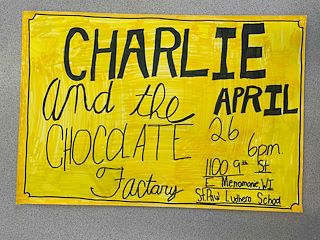 CHARLIE
and the
CHOCOLATE
Factory
APRIL
26
6pm
1100 9th St
E Menomonie, WI
St. Paul Luthern School